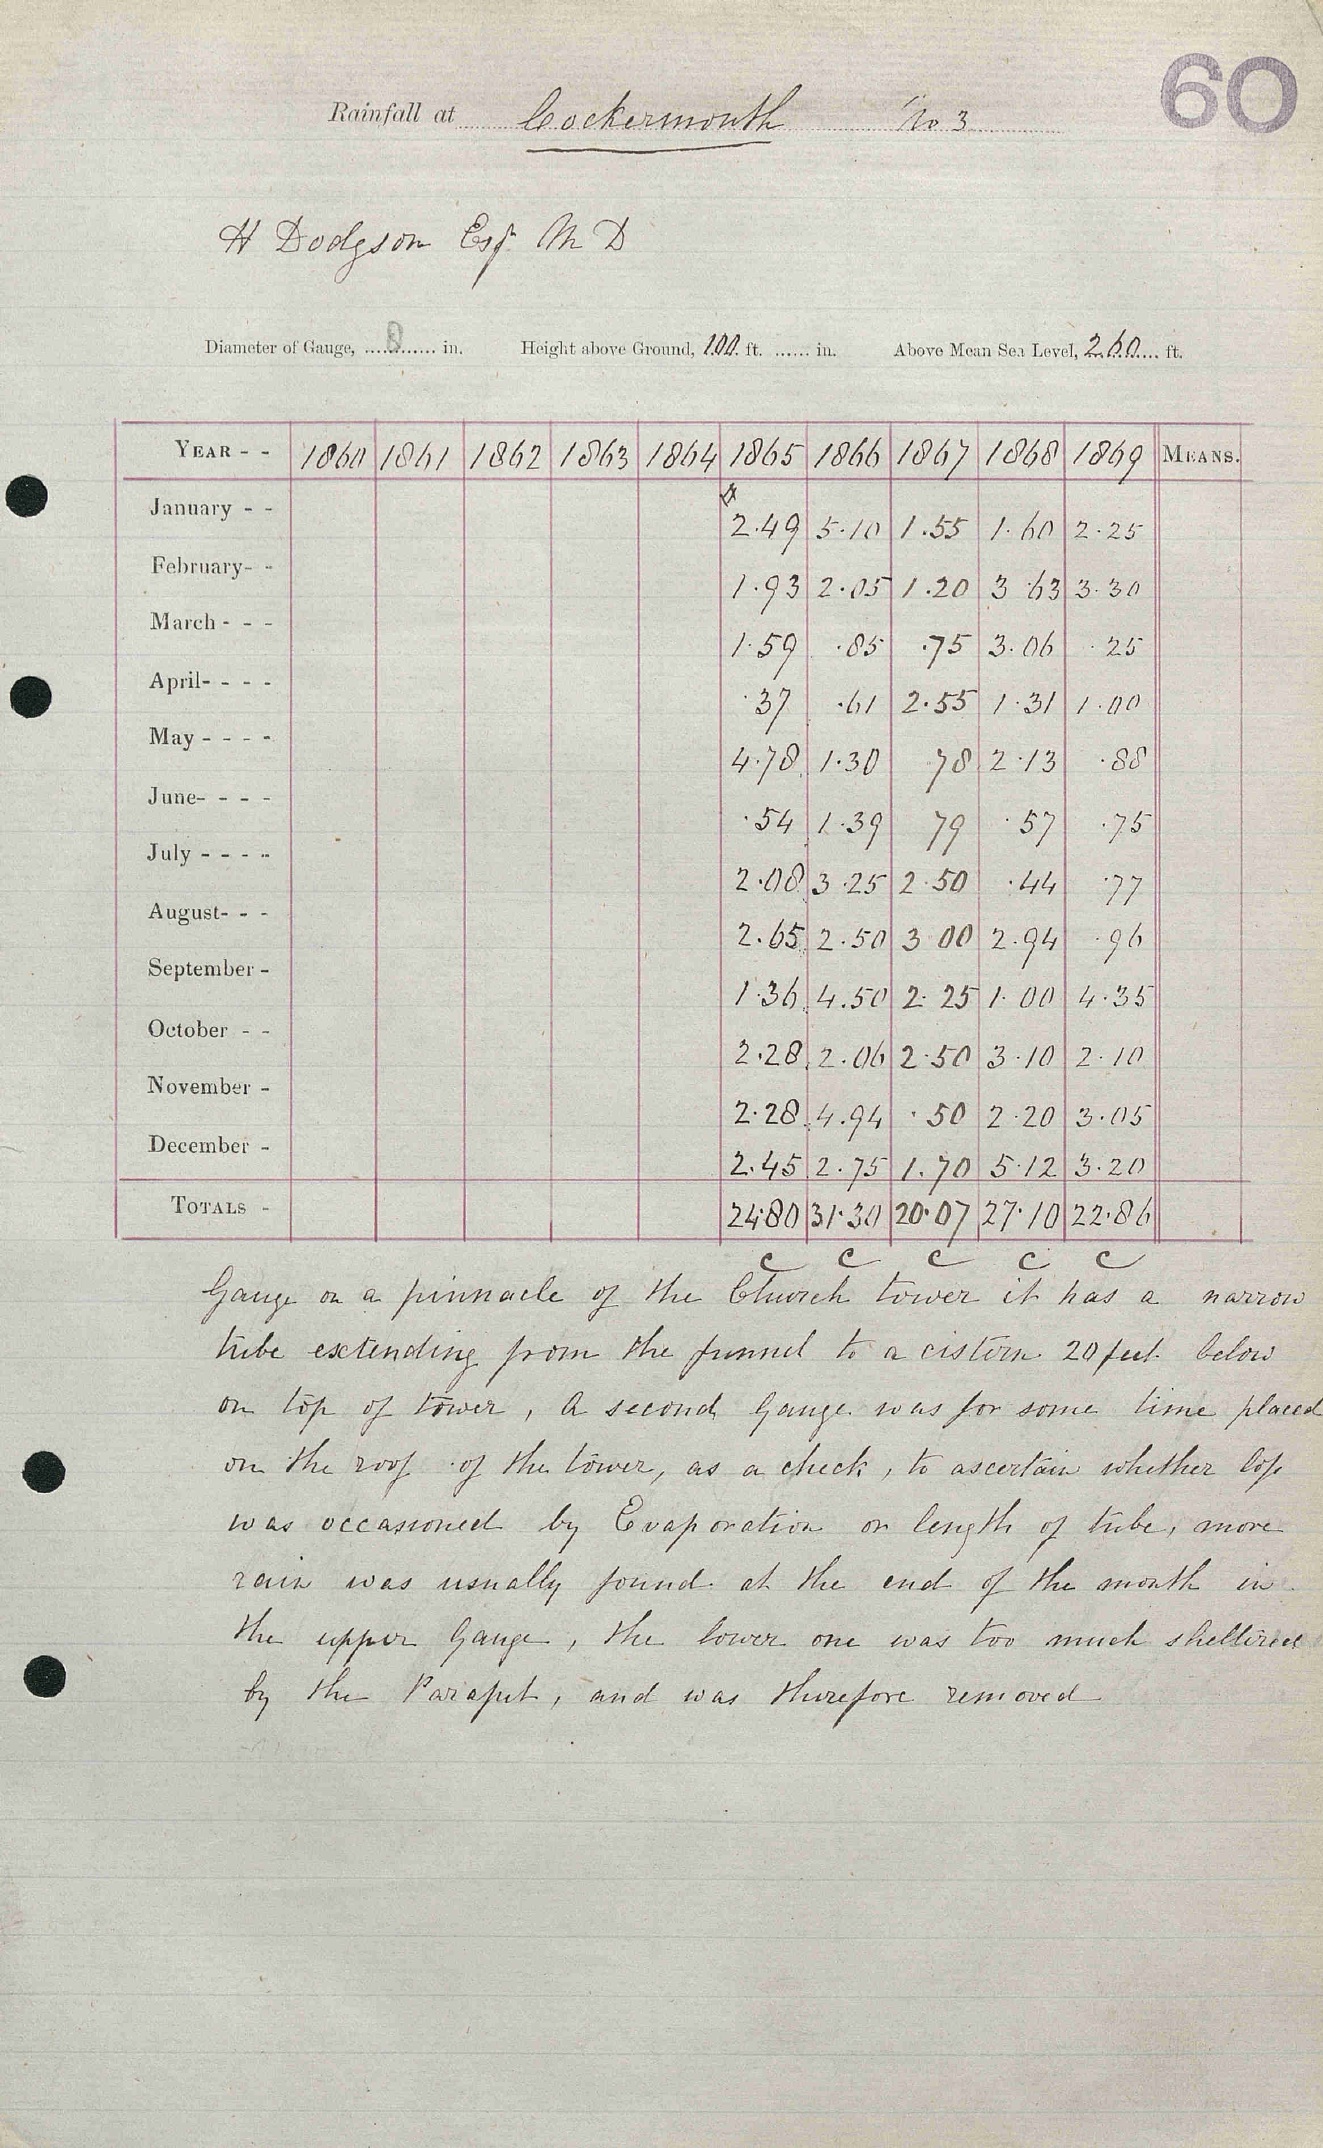 60
Rainfall at Cockermouth No 3
H Dodgson Esqr M D
Diameter of Gauge, 8 in. Height above Ground, 100 ft. ...... in. Above Mean Sea Level, 260 ft.
YEAR - - 1860 1861 1862 1863 1864 1865 1866 1867 1868 1869 MEANS.
January - - 2.49 5.10 1.55 1.60 2.25
February- - 1.93 2.05 1.20 3 63 3.30
March - - - 1.59 .85 .75 3.06 .25
April- - - - .37 .61 2.55 1.31 1.00
May - - - - 4.78 1.30 78 2.13 .88
June- - - - .54 1.39 79 .57 .75
July - - - - 2.08 3.25 2.50 .44 .77
August- - - 2.65 2.50 3 00 2.94 .96
September - 1.36 4.50 2.25 1.00 4.35
October - - 2.28 2.06 2.50 3.10 2.10
November - 2.28 4.94 .50 2.20 3.05
December - 2.45 2.75 1.70 5.12 3.20
TOTALS - 24.80 31.30 20.07 27.10 22.86
c c c c c
Gauge on a pinnacle of the Church tower it has a narrow
tube extending from the funnel to a cistern 20 feet below
on top of tower, A second Gauge was for some time placed
on the roof of the tower, as a check, to ascertain whether loss
was occasioned by Evaporation or length of tube, more
rain was usually found at the end of the month in
the upper Gauge, the lower one was too much sheltered
by the Parapet, and was therefore removed